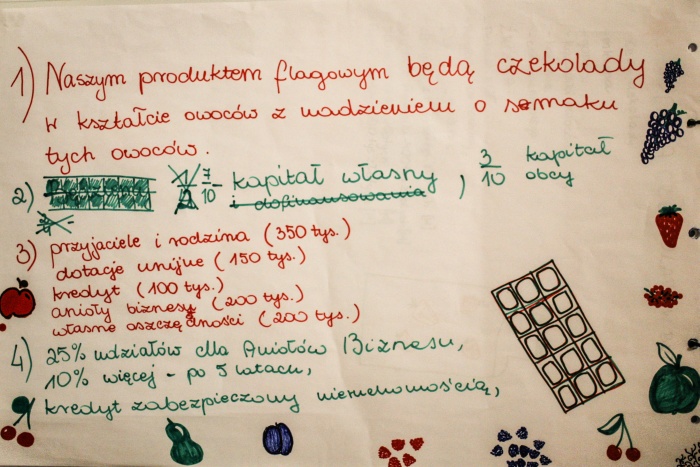 1) Naszym produktem flagowym będą czekolady
w kształcie owoców z nadzieniem o smaku
tych owoców.
2) 7/10 - kapitał własny, 3/10 kapitał obcy
i dofinansowania
3) przyjaciele i rodzina (350 tys.)
dotacje unijne (150 tys.)
kredyt (100 tys.)
anioły biznesu (200 tys.)
własne oszczędności (200 tys.)
4) 25% udziałów dla Aniołów Biznesu,
10% więcej - po 5 latach,
kredyt zabezpieczony nieruchomością,